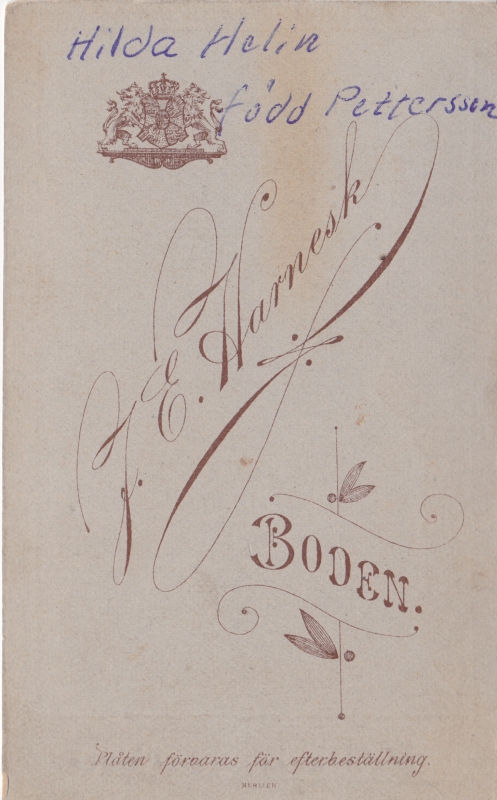 Hilda Helin
född Pettersson
J. E. Harnesk
BODEN.
Plåten förvaras för efterbeställning.